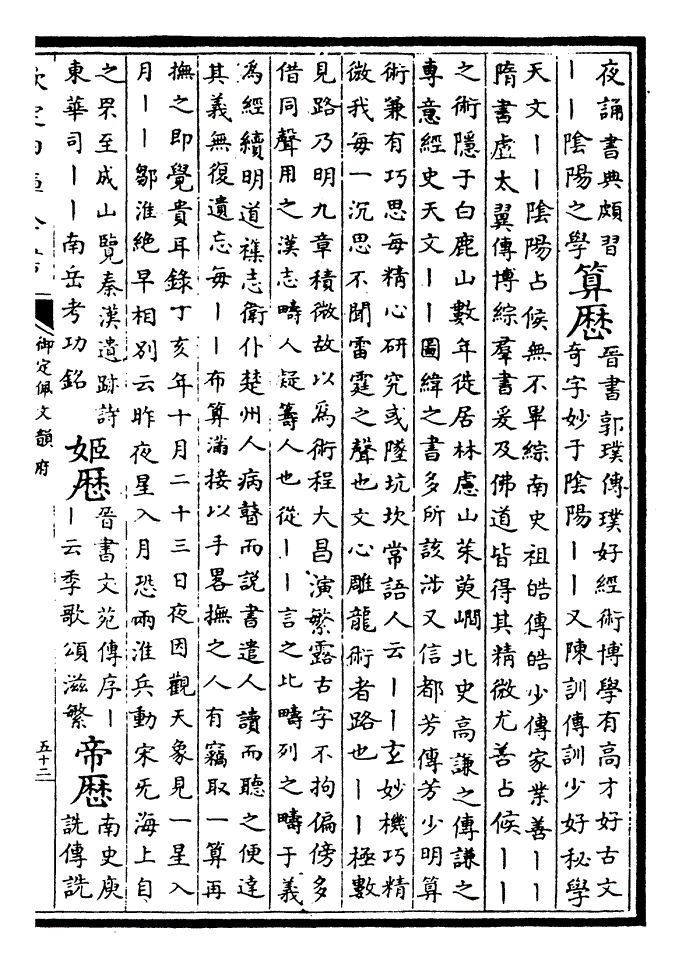 夜誦書典頗習
丨丨陰陽之學
算厯
晉書郭璞傳璞好經術博學有高才好古文
奇字妙于陰陽丨丨又陳訓傳訓少好秘學
天文丨丨陰陽占候無不畢綜南史祖皓傳皓少傳家業善丨丨
隋書盧太翼傳博綜羣書爰及佛道皆得其精微尤善占候丨丨
之術隱于白鹿山數年徙居林慮山茱萸㵎北史高謙之傳謙之
專意經史天文丨丨圖緯之書多所該涉又信都芳傳芳少明算
術兼有巧思每精心研究或墜坑坎常語人云丨丨玄妙機巧精
微我每一沉思不聞雷霆之聲也文心雕龍術者路也丨丨極數
見路乃明九章積微故以爲術程大昌演繁露古字不拘偏傍多
借同聲用之漢志疇人疑籌人也從丨丨言之比疇列之疇于義
爲經續明道襍志衛仆楚州人病瞽而説書遣人讀而聽之便達
其義無復遺忘每丨丨布算滿接以手畧撫之人有竊取一算再
撫之即覺貴耳錄丁亥年十月二十三日夜因觀天象見一星入
月丨丨鄒淮絶早相别云昨夜星入月恐兩淮兵動宋旡海上自
之罘至成山覽秦漢遺跡詩
東華司丨丨南岳考功銘
姬厯
晉書文苑傳序丨
丨云季歌頌滋繁
帝厯
南史庾
詵傳詵
欽定四庫全書
御定佩文韻府
五十二